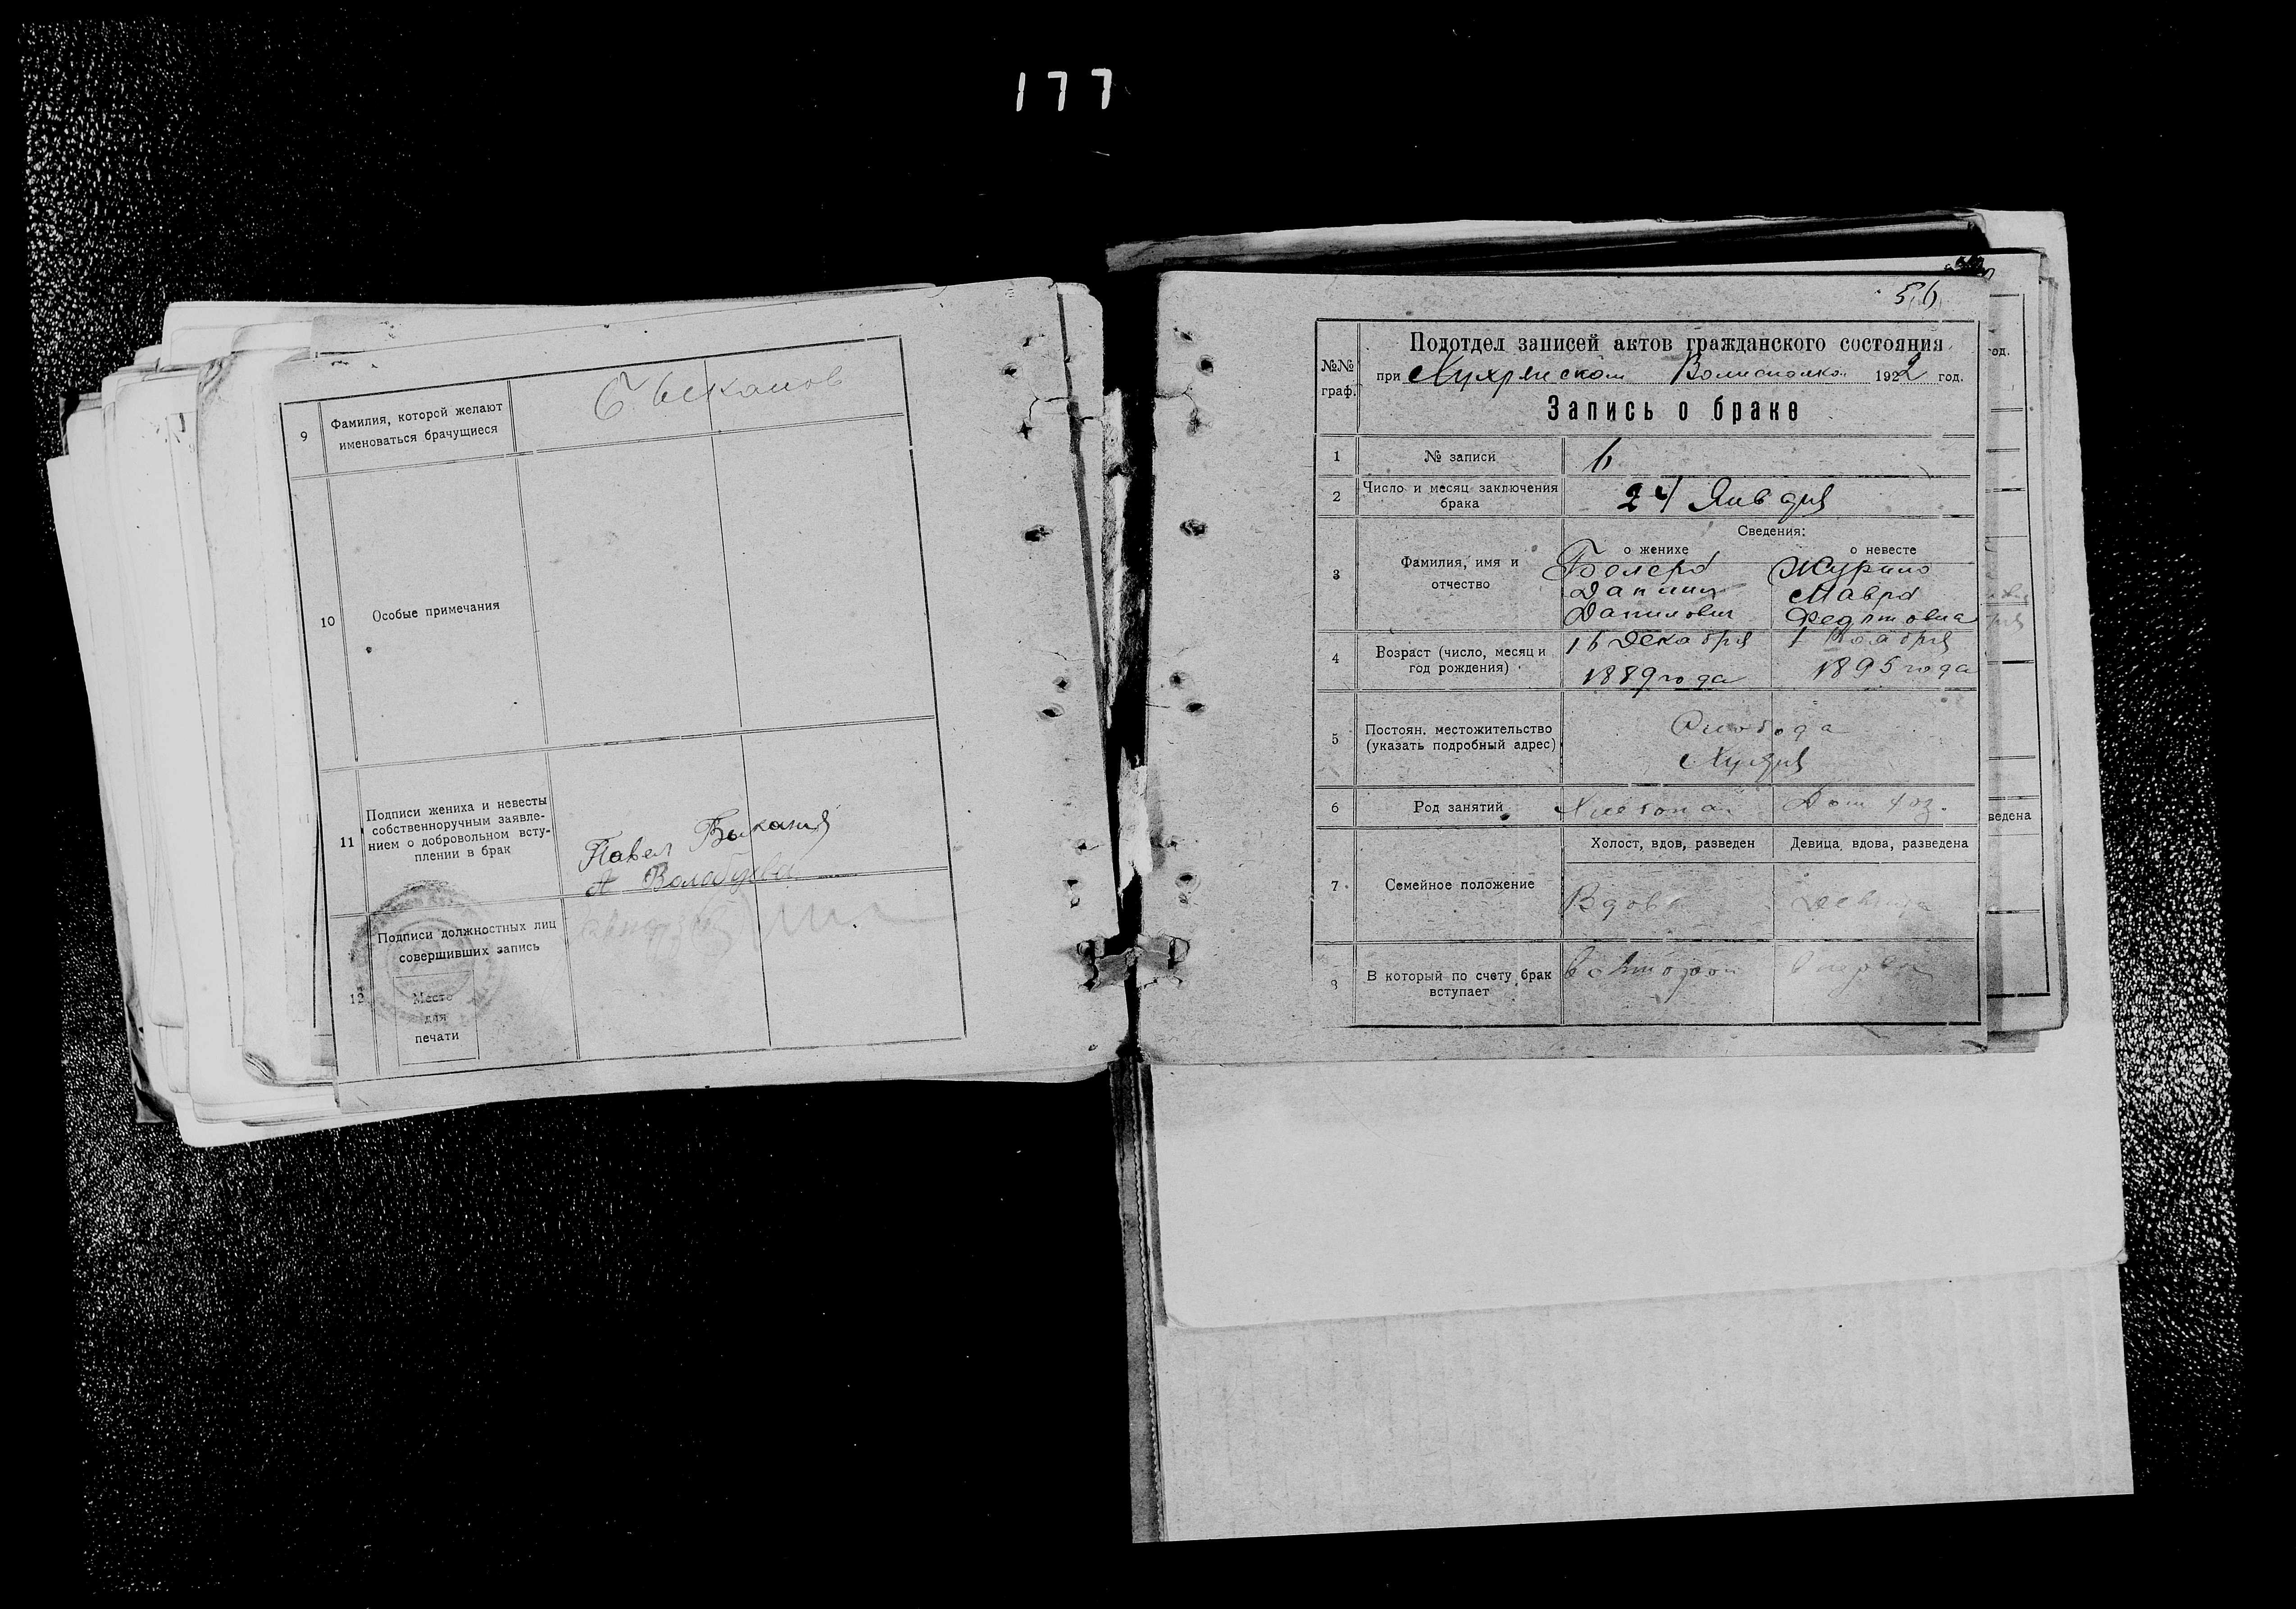 177
9
Фамилия, которой желают
именоваться брачущиеся
Быканов
10
Особые примечания
11
Подписи жениха и невесты
собственноручным заявле-
нием о добровольном всту-
плении в брак
Павел Быканов
А Волобуева
12
Подписи должностных лиц
совершивших запись
Место
для
печати
56
№№
граф.
Подотдел записей актов гражданского состояния
при Волисполко. 1922 год.
Запись о браке
1
№ записи
6
2
Число и месяц заключения
брака
24 Января
Сведения:
3
Фамилия, имя и
отчество
о женихе
о невесте
Данилович
Мавра
4
Возраст (число, месяц и
год рождения)
16 Декабря
1889 года
1 Ноября
1895 года
5
Постоян. местожительство
(указать подробный адрес)
Слобода
6
Род занятий
Дом хоз.
7
Семейное положение
Холост, вдов, разведен
Девица, вдова, разведена
Вдов
Девица
8
В который по счету брак
вступает
во второй
од.
ведена